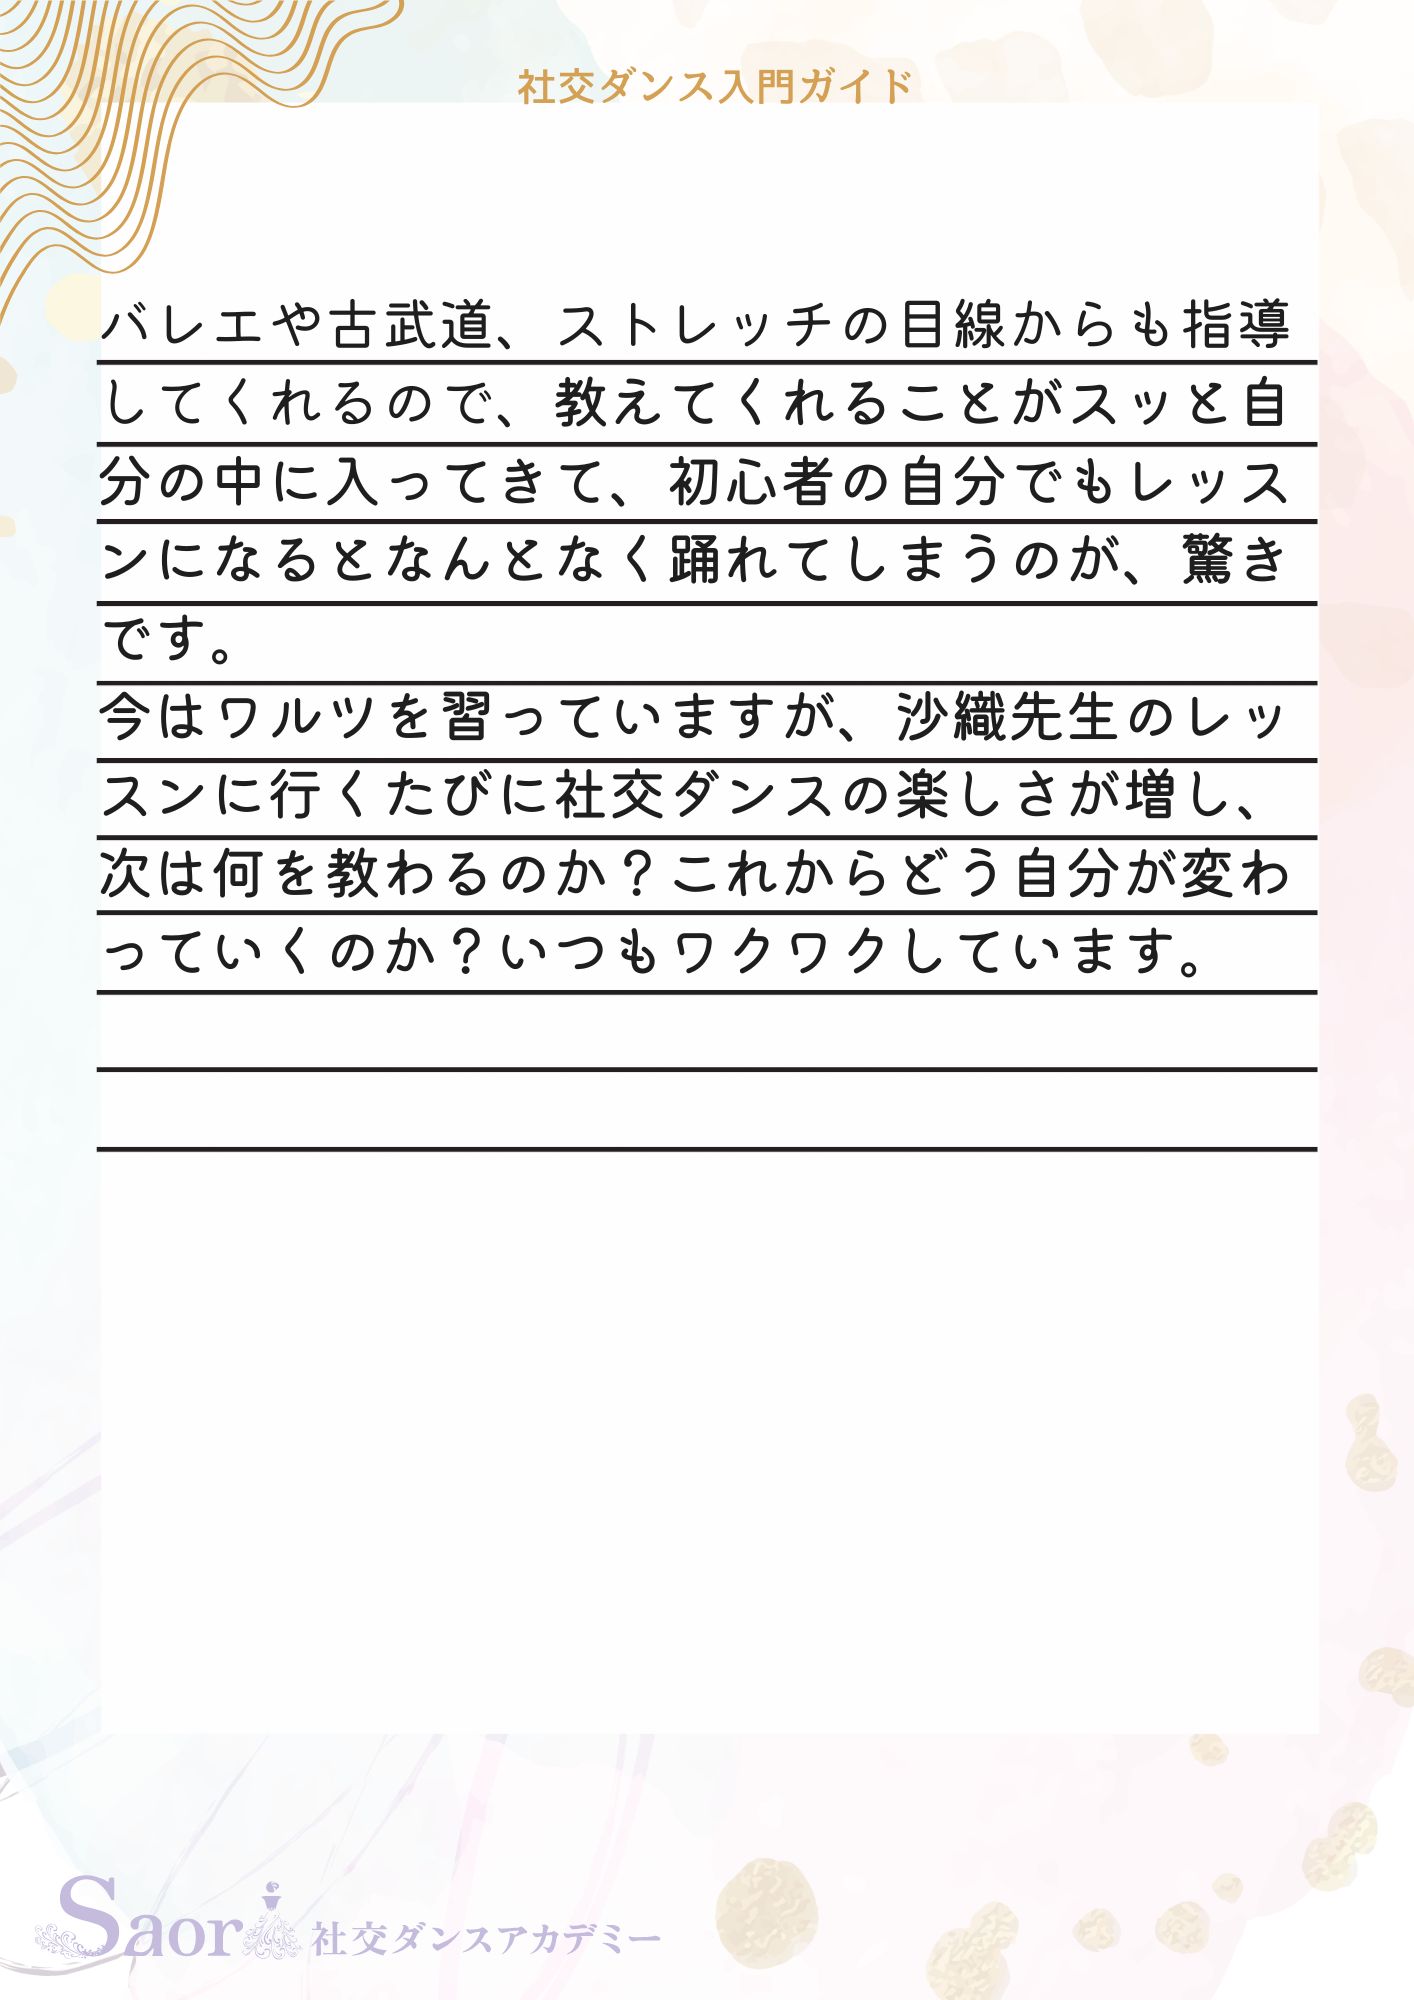 社交ダンス入門ガイド
バレエや古武道、ストレッチの目線からも指導
してくれるので、教えてくれることがスッと自
分の中に入ってきて、初心者の自分でもレッス
ンになるとなんとなく踊れてしまうのが、驚き
です。
今はワルツを習っていますが、沙織先生のレッ
スンに行くたびに社交ダンスの楽しさが増し、
次は何を教わるのか？これからどう自分が変わ
っていくのか？いつもワクワクしています。
Saori 社交ダンスアカデミー